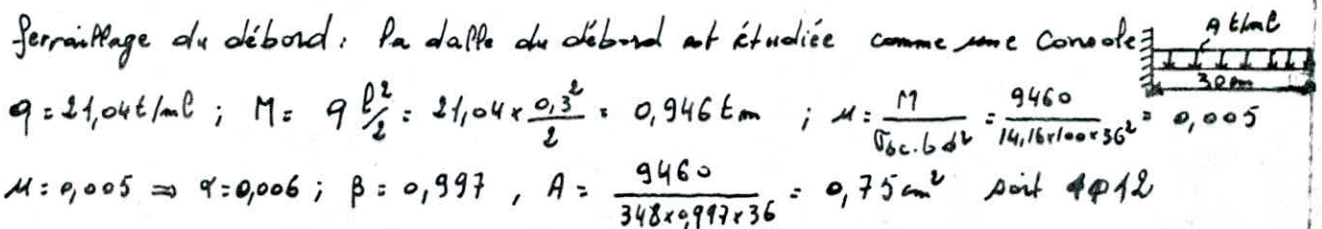 ferraillage du débord : la dalle du débord est étudiée comme une console
q t/ml
30 cm
q = 21,04 t/ml ; M = q l²/2 = 21,04 x 0,3²/2 = 0,946 tm ; μ = M/σbc.b d² = 9460/14,16x100x36² = 0,005
μ = 0,005 ⇒ α = 0,006 ; β = 0,997 , A = 9460/348x0,997x36 = 0,75 cm² soit 4φ12